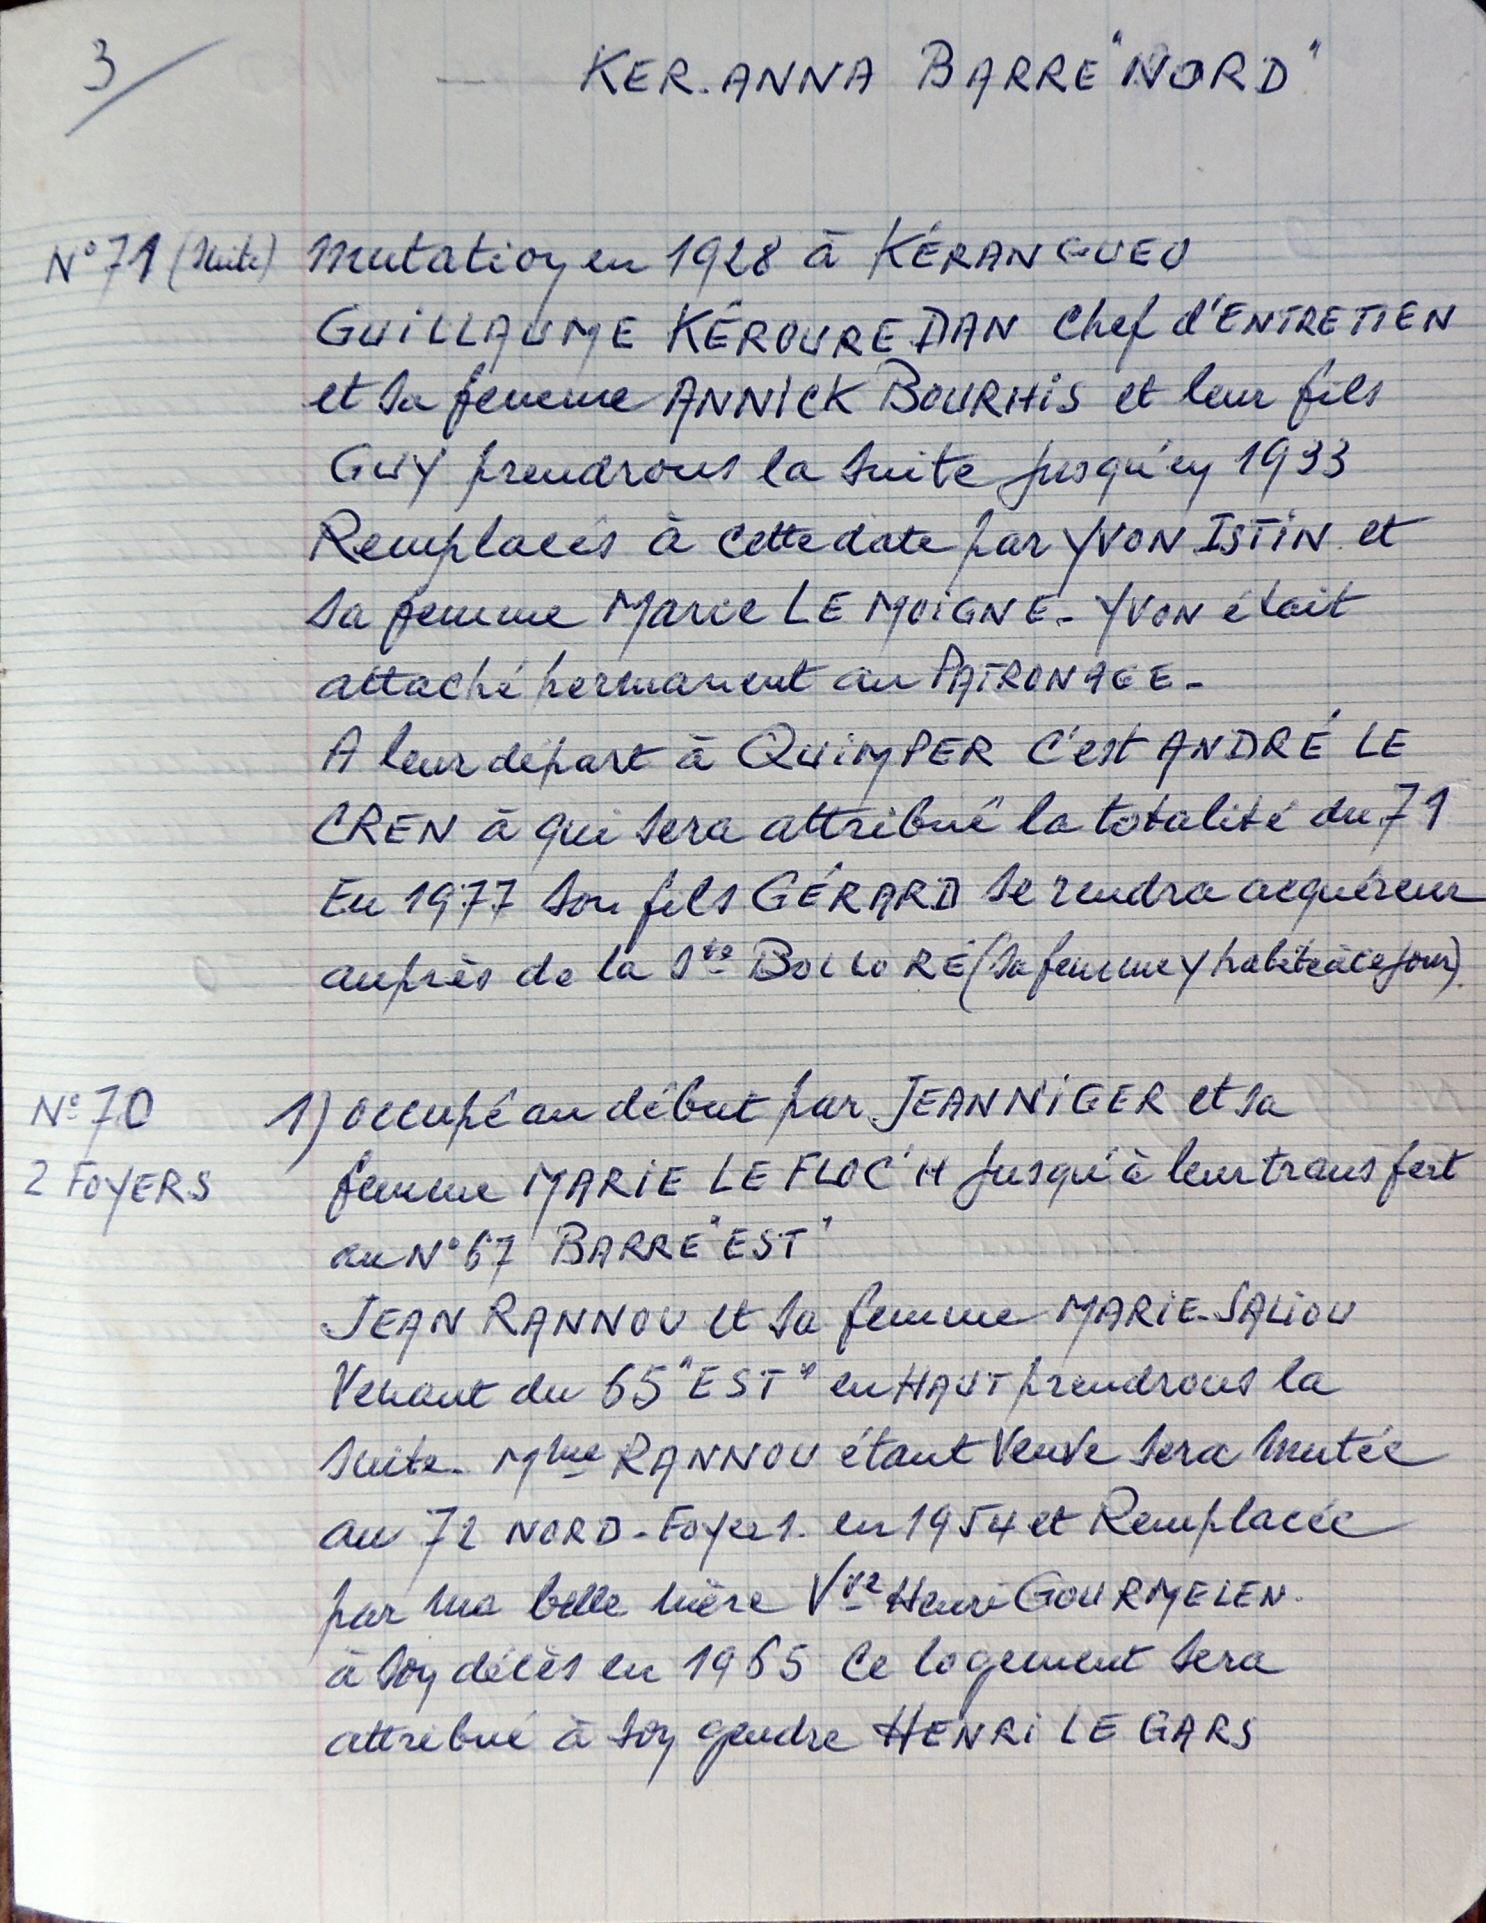 3/
KER.ANNA BARRE "NORD"
N° 71 (suite) Mutation en 1928 à KÉRANGUEO
GUILLAUME KÉROUREDAN Chef d'ENTRETIEN
et sa femme ANNICK BOURHIS et leur fils
GUY prendrons la suite jusqu'en 1933
Remplacés à cette date par YVON ISTIN et
sa femme Marie LE MOIGNE - YVON était
attaché permanent au PATRONAGE -
A leur départ à QUIMPER C'est ANDRÉ LE
CREN à qui sera attribué la totalité du 71
En 1977 son fils GÉRARD se rendra acquéreur
auprès de la Sté BOLLORÉ (sa femme y habite à ce jour).
N° 70 1) occupé au début par JEAN NIGER et sa
2 FOYERS femme MARIE LE FLOC'H jusqu'à leur transfert
au N° 67 BARRE "EST"
JEAN RANNOU et sa femme MARIE-SALIOU
Venant du 65 "EST" en HAUT prendrons la
suite. Mme RANNOU étant Veuve sera mutée
au 72 NORD - Foyer 1. en 1954 et Remplacée
par ma belle mère Vve Henri GOURMELEN.
à son décès en 1965 Ce logement sera
attribué à son gendre HENRI LE GARS